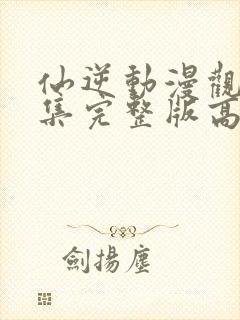 仙逆動漫觀
集完整版高
劍揚塵